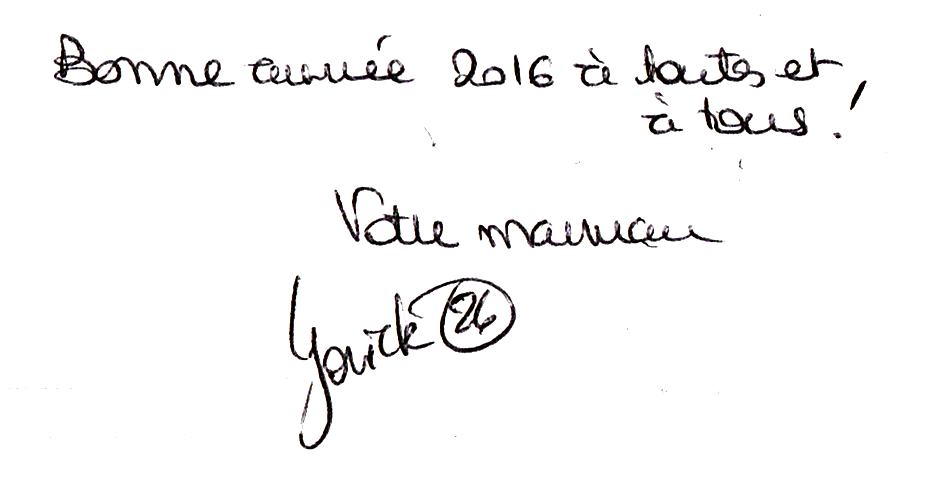 Bonne année 2016 à toutes et
à tous !
Votre
Yorick 26